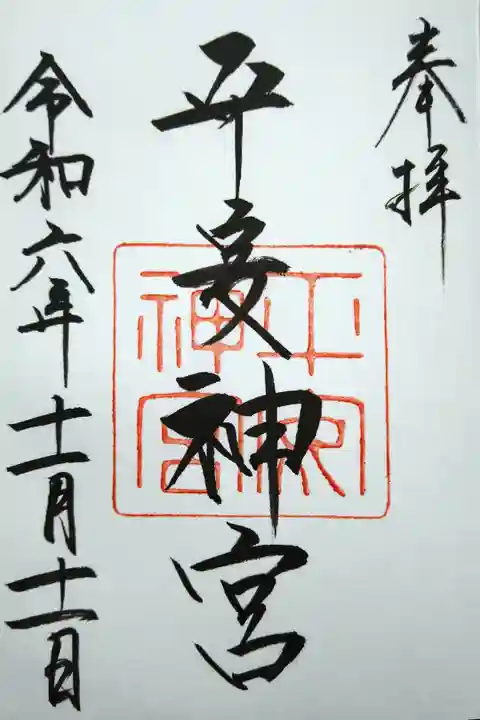 奉拝
平安神宮
平安
神宮
令和六年十一月十一日